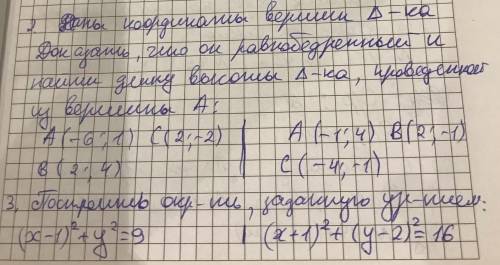 2. Даны координаты вершин Δ-ка
Доказать, что он равнобедренный и
найти длину высоты Δ-ка, проведенной
из вершины А:
А(-6; 1) С(2; -2) | А(-1; 4) В(2; -1)
В(2; 4) С(-4; -1)
3. Построить окр-ть, заданную ур-нием:
(x-1)²+y²=9 | (x+1)²+(y-2)²=16